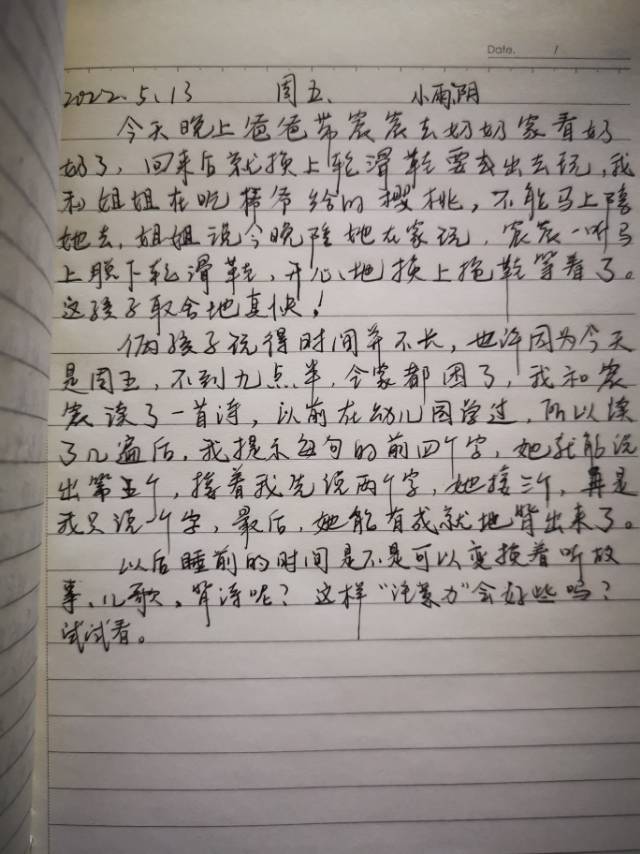 Date. /
2022.5.13 周五、 小雨阴
今天晚上爸爸带宸宸去奶奶家看奶
奶了，回来后就换上轮滑鞋要去出去玩，我
和姐姐在吃爷爷给的樱桃，不能马上陪
她去，姐姐说今晚陪她在家玩，宸宸一听马
上脱下轮滑鞋，开心地换上拖鞋等着了。
这孩子取舍地真快！
俩孩子玩得时间并不长，也许因为今天
是周五，不到九点半，全家都困了，我和宸
宸读了一首诗，以前在幼儿园学过，所以读
了几遍后，我提示每句的前四个字，她就能说
出第五个，接着我先说两个字，她接三个，再是
我只说一个字，最后，她能有成就地背出来了。
以后睡前的时间是不是可以变换着听故
事、儿歌、背诗呢？这样“注意力”会好些吗？
试试看。